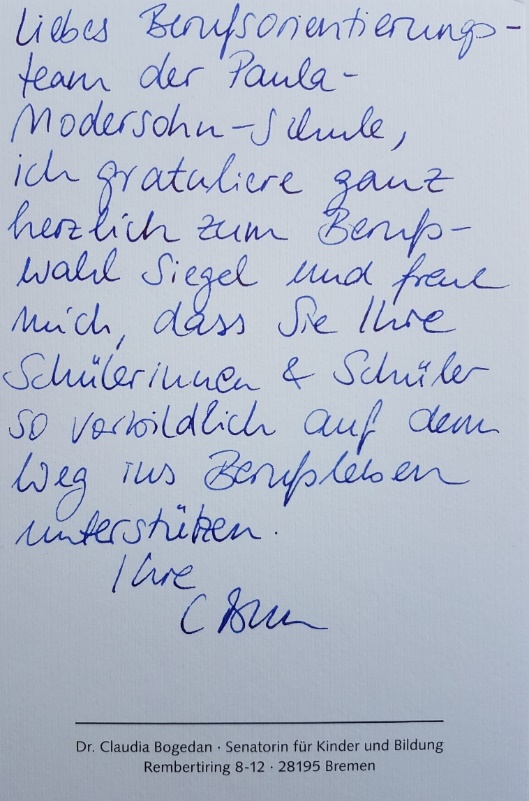 Liebes Berufsorientierungs-
team der Paula-
Modersohn-Schule,
ich gratuliere ganz
herzlich zum Berufs-
wahl Siegel und freue
mich, dass Sie Ihre
Schülerinnen & Schüler
so vorbildlich auf dem
Weg ins Berufsleben
unterstützen.
Ihre
Dr. Claudia Bogedan · Senatorin für Kinder und Bildung
Rembertiring 8-12 · 28195 Bremen